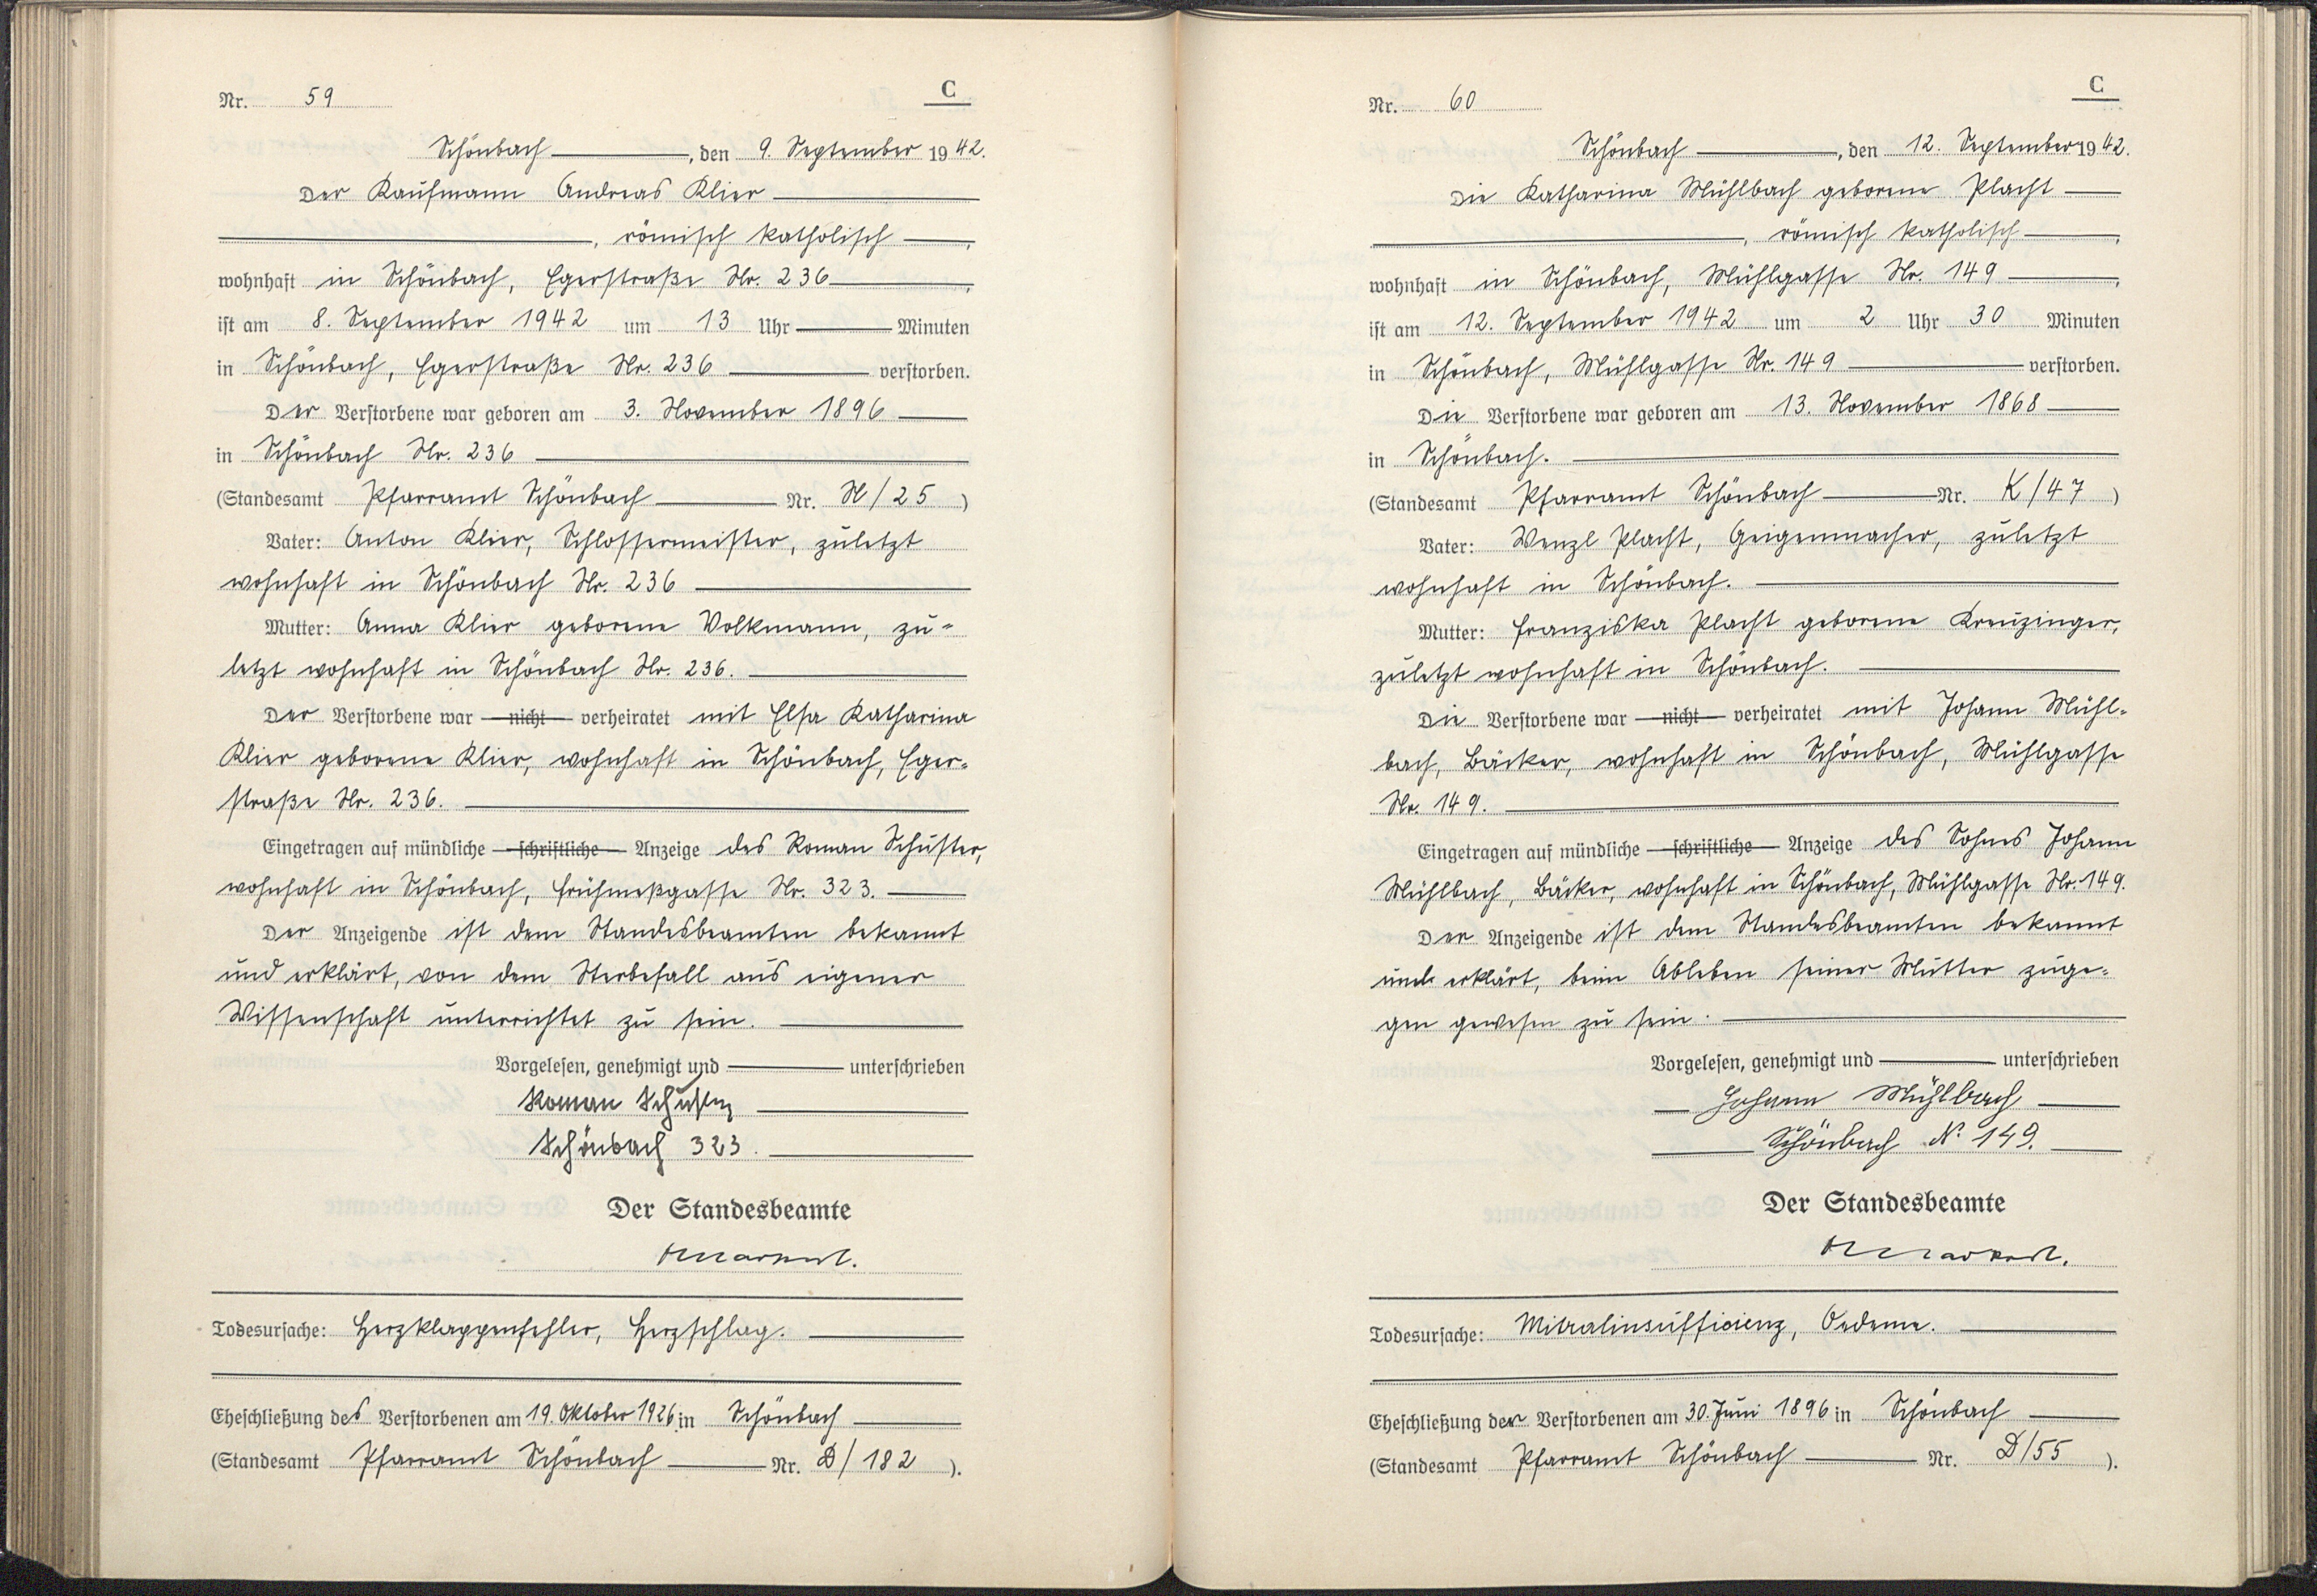 Nr. 59
C
Schönbach, den 9. September 1942.
Der Kaufmann Andreas Klier
, römisch katholisch,
wohnhaft in Schönbach, Egerstraße Nr. 236,
ist am 8. September 1942 um 13 Uhr Minuten
in Schönbach, Egerstraße Nr. 236 verstorben.
Der Verstorbene war geboren am 3. November 1896
in Schönbach Nr. 236
(Standesamt Pfarramt Schönbach Nr. N/25)
Vater: Anton Klier, Schlossermeister, zuletzt
wohnhaft in Schönbach Nr. 236
Mutter: Anna Klier geborene Volkmann, zu-
letzt wohnhaft in Schönbach Nr. 236.
Der Verstorbene war nicht verheiratet mit Elsa Katharina
Klier geborene Klier, wohnhaft in Schönbach, Eger-
straße Nr. 236.
Eingetragen auf mündliche schriftliche Anzeige des Roman Schuster,
wohnhaft in Schönbach, Frühmeßgasse Nr. 323.
Der Anzeigende ist dem Standesbeamten bekannt
und erklärt, von dem Sterbefall aus eigener
Wissenschaft unterrichtet zu sein.
Vorgelesen, genehmigt und unterschrieben
Roman Schuster
Schönbach 323.
Der Standesbeamte
Todesursache: Herzklappenfehler, Herzschlag.
Eheschließung des Verstorbenen am 19. Oktober 1926 in Schönbach
(Standesamt Pfarramt Schönbach Nr. D/182).
Nr. 60
C
Schönbach, den 12. September 1942.
Die Katharina Mühlbach geborene Placht
, römisch katholisch,
wohnhaft in Schönbach, Mühlgasse Nr. 149,
ist am 12. September 1942 um 2 Uhr 30 Minuten
in Schönbach, Mühlgasse Nr. 149 verstorben.
Die Verstorbene war geboren am 13. November 1868
in Schönbach.
(Standesamt Pfarramt Schönbach Nr. K/47)
Vater: Wenzl Placht, Geigenmacher, zuletzt
wohnhaft in Schönbach.
Mutter: Franziska Placht geborene Kreuzinger,
zuletzt wohnhaft in Schönbach.
Die Verstorbene war nicht verheiratet mit Johann Mühl-
bach, Bäcker, wohnhaft in Schönbach, Mühlgasse
Nr. 149.
Eingetragen auf mündliche schriftliche Anzeige des Sohnes Johann
Mühlbach, Bäcker, wohnhaft in Schönbach, Mühlgasse Nr. 149.
Der Anzeigende ist dem Standesbeamten bekannt
und erklärt, beim Ableben seiner Mutter zuge-
gen gewesen zu sein.
Vorgelesen, genehmigt und unterschrieben
Johann Mühlbach
Schönbach N. 149.
Der Standesbeamte
Todesursache: Mitralinsufficienz, Oedeme.
Eheschließung der Verstorbenen am 30. Juni 1896 in Schönbach
(Standesamt Pfarramt Schönbach Nr. D/55).